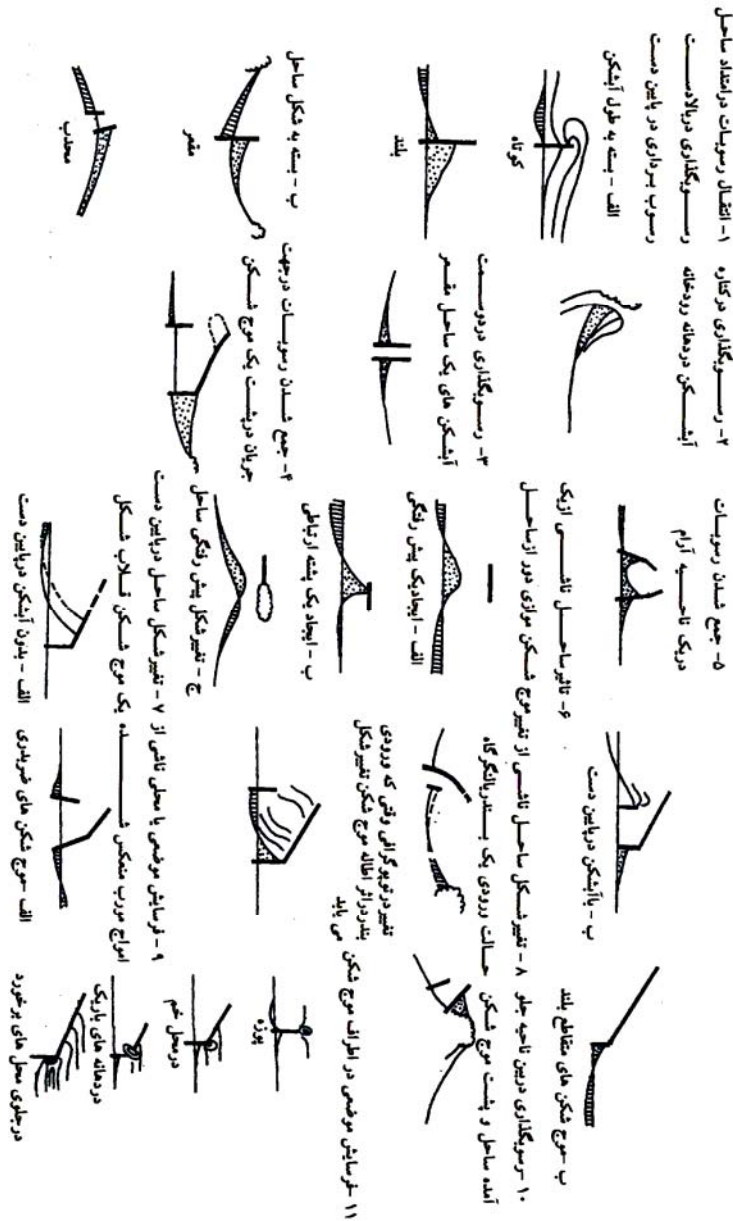 ۱- انتقال رسوبات درامتداد ساحل
رسوبگذاری دربالادست
رسوب برداری در پایین دست
الف - بسته به طول آبشکن
کوتاه
بلند
ب - بسته به شکل ساحل
مقعر
محدب
۲- رسوبگذاری درکناره
آبشکن دردهانه رودخانه
۳- رسوبگذاری دردوسمت
آبشکن های یک ساحل مقعر
۴- جمع شدن رسوبات درجهت
جریان درپشت یک موج شکن
۵- جمع شدن رسوبات
دریک ناحیه آرام
۶- تاثیرساحل ناشی ازیک
موج شکن موازی دور ازساحل
الف - ایجادیک پیش رفتگی
ب - ایجاد یک پشته ارتباطی
ج - تغییرشکل پیش رفتگی ساحل
۷ - تغییرشکل ساحل درپایین دست
یک موج شکن قلاب شکل
الف - بدون آبشکن درپایین دست
ب - باآبشکن درپایین دست
۸ - تغییر شکل ساحل ناشی از تغییر
حالت ورودی یک بندریالنگرگاه
تغییر درتوپوگرافی وقتی که ورودی
بندردراثر اطاله موج شکن تغییرشکل
می یابد
۹ - فرسایش موضعی یا محلی ناشی از
امواج مورب منعکس شده
الف -موج شکن های ضربدری
ب -موج شکن های متقاطع بلند
۱۰ -رسوبگذاری دربین ناحیه جلو
آمده ساحل و پشت موج شکن
۱۱ -فرسایش موضعی در اطراف موج شکن
پوزه
درمحل خم
دردهانه های باریک
درجلوی محل های برخورد